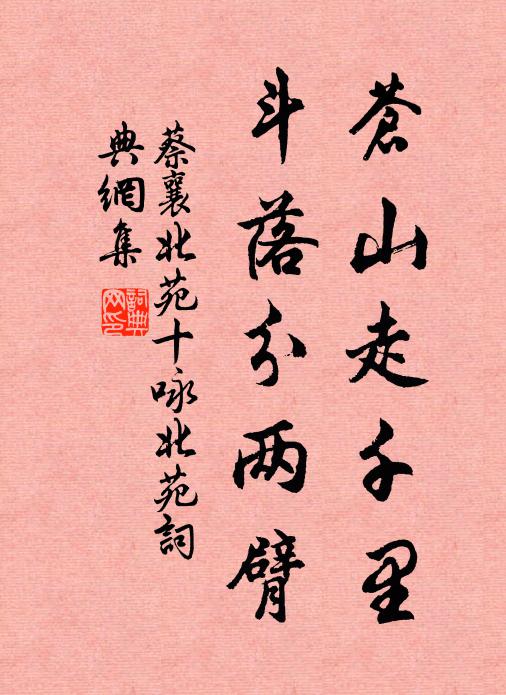 蒼山走千里
斗落分两臂
蔡襄北苑十咏北苑詞
典網集
詞典网印